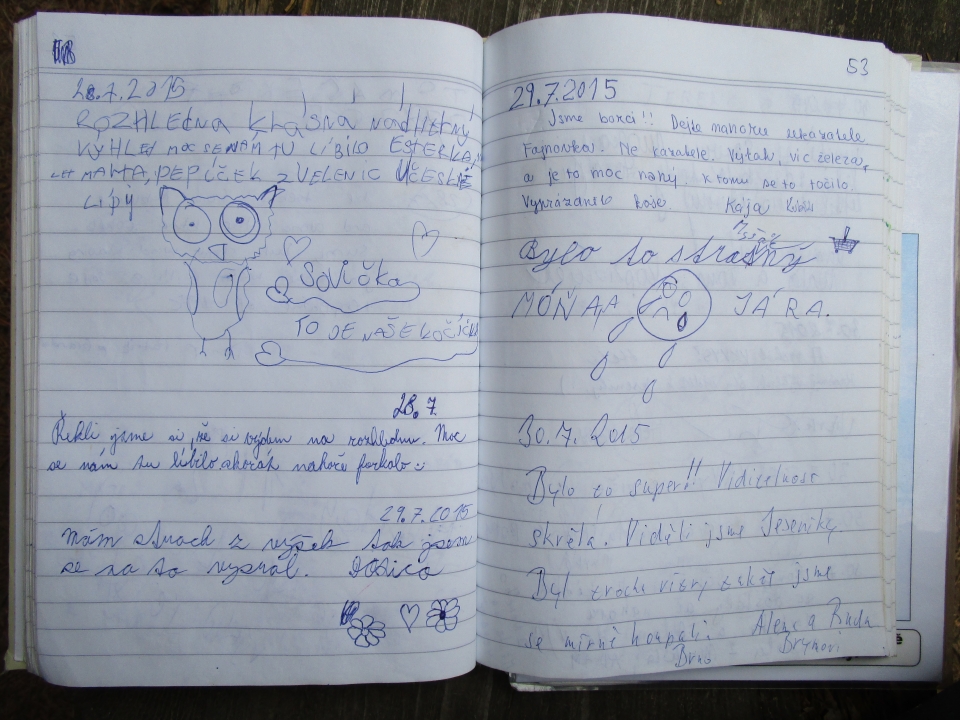 28.7.2015
ROZHLEDNA KRÁSNÁ NÁDHERNÝ
VÝHLED MOC SE NÁM TU LÍBILO ESTERKA,
MARTA, PEPÍČEK Z VELENIC U ČESKÉ
LÍPY
SOVIČKA
TO JE NAŠE KOČIČKA
28.7.
Řekli jsme si, že si vyjdem na rozhlednu. Moc
se nám tu líbilo akorát nahoře foukalo
29.7.2015
Mám strach z výšek tak jsem
se na to vysral.
53
29.7.2015
Jsme borci!! Dejte nahoru ukazatele
Fajnovka. Ne kazatele. Výtah, víc železa,
a je to moc nahý. K tomu se to točilo.
Vyprázdněte koše Kája
Bylo to strašný
MÓŇA JÁRA.
30.7.2015
Bylo to super!! Viditelnost
skvělá. Viděli jsme Jeseníky
Byl trochu vítr, takže jsme
se mírně houpali. Alena a Ruda
Brno